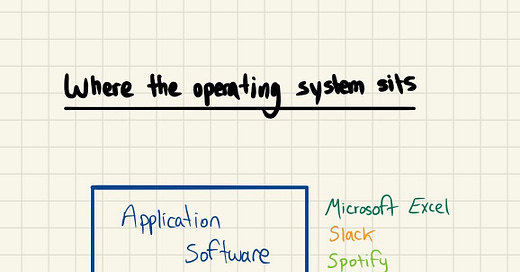 Where the operating system sits
Application
Software
Microsoft Excel
Slack
Spotify